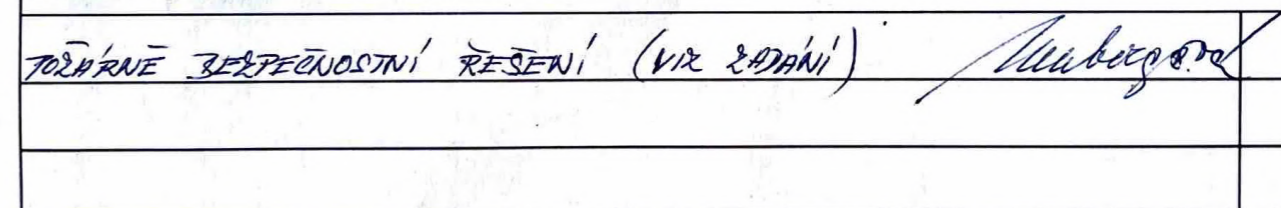 POŽÁRNĚ BEZPEČNOSTNÍ ŘEŠENÍ (VIZ ZADÁNÍ)